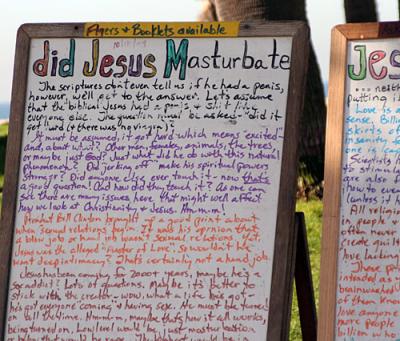 Flyers & Booklets available
did Jesus Masturbate
The scriptures don't even tell us if he had a penis,
however, we'll get to the answer. Lets assume
that the "biblical Jesus had a penis & shit like
everyone else. The question must be asked - "did it
get hard (if there was no virgin)?
It must be assumed it got hard which means "excited"-
and, about what? Other men, females, animals, the trees,
or maybe just God? Just what did he do with this natural
Phenomena? Did jerking off make his spiritual powers
stronger? Did anyone else ever touch it - now thats
a good question! And how did they touch it? As one can
see there are many issues here that might well affect
how we look at Christianity & Jesus. Hmmum!
President Bill Clinton brought up a good point about
when sexual relations begin. It was his opinion that
a blow job or hand job wasn't sexual relations. Yet,
Jesus was the alleged master of Love. So wouldn't he
want deep intimacy? Thats certainly not a hand job.
Jesus has been coming for 2000+ years, maybe he's a
sex addict! Lots of questions. Maybe its better to
stick with the creator - wow, what a life long god -
has got everyone coming & having sex. He must be turned
on all the time. Hmmum, maybe thats how it all works,
being turned on. Low level would be just masturbation
Jes
... neither
putting it
Love is a
sense. Bill
skirts of
insanity fo
one is
Scientists
to stimula
are also
how to eve
(unless it h
All religion
in people
often never
create guilt
love lacking
These
intended as
brainwashed
of them know
love anymore
more people
billion who